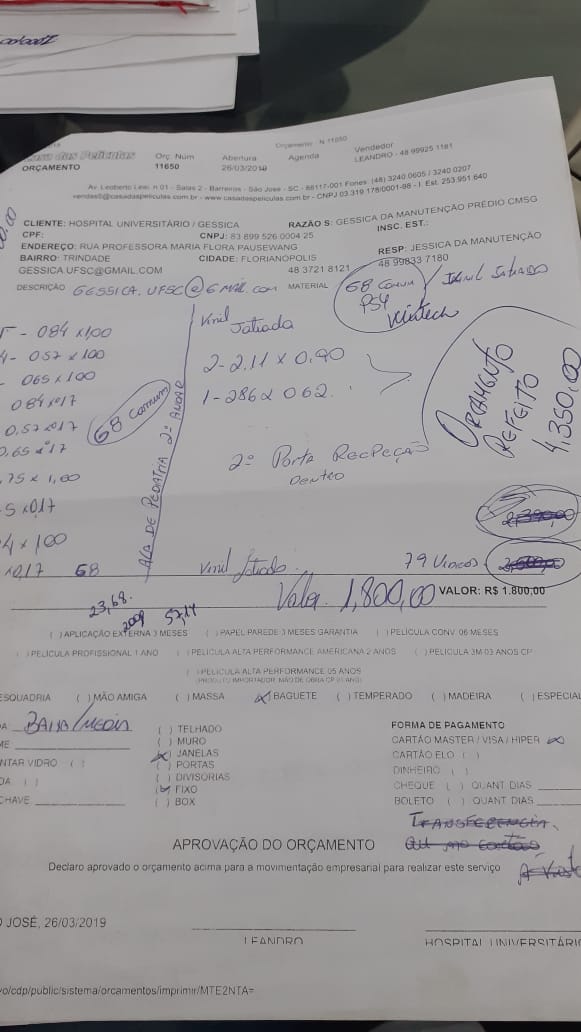 Casa das Películas
ORÇAMENTO
Orç. Núm
11650
Abertura
26/03/2019
Orçamento N 11650
Agenda
Vendedor
LEANDRO - 48 99925 1181
Av. Leoberto Leal, n 01 - Salas 2 - Barreiros - São José - SC - 88117-001 Fones: (48) 3240 0605 / 3240 0207
CLIENTE: HOSPITAL UNIVERSITÁRIO / GESSICA
RAZÃO S: GESSICA DA MANUTENÇÃO PRÉDIO CMSG
CPF:
CNPJ: 83 899 526 0004 25
INSC. EST.:
ENDEREÇO: RUA PROFESSORA MARIA FLORA PAUSEWANG
BAIRRO: TRINDADE
CIDADE: FLORIANOPOLIS
RESP: JESSICA DA MANUTENÇÃO
GESSICA.UFSC@GMAIL.COM
48 3721 8121
48 99833 7180
DESCRIÇÃO GESSICA.UFSC@GMAIL.COM
MATERIAL G8 COMUM / Vinil Jatiado
PS4
Wintech
- 084 x 100
- 057 x 100
065 x 100
084 x 017
0,57 x 017
0,65 x 17
75 x 1,00
5 x 0,17
4 x 100
x 0,17 G8
G8 Comum
ALA DE PEDIATRIA 2º ANDAR
Vinil
Jatiada
2 - 2.11 x 0.90
1 - 286 x 062
2º Porta Recepção
Dentro
ORÇAMENTO
REFEITO
4.350,00
Vinil Jatiado
79 Vidros
Valor 1,800,00
VALOR: R$ 1.800,00
23,68
57,14
( ) APLICAÇÃO EXTERNA 3 MESES ( ) PAPEL PAREDE 3 MESES GARANTIA ( ) PELICULA CONV. 06 MESES
( ) PELICULA PROFISSIONAL 1 ANO ( ) PELICULA ALTA PERFORMANCE AMERICANA 2 ANOS ( ) PELICULA 3M 03 ANOS CP
( ) PELICULA ALTA PERFORMANCE 05 ANOS
ESQUADRIA ( ) MÃO AMIGA ( ) MASSA (x) BAGUETE ( ) TEMPERADO ( ) MADEIRA ( ) ESPECIAL
BAIXA/MEDIA
( ) TELHADO
( ) MURO
(x) JANELAS
( ) PORTAS
( ) DIVISORIAS
(x) FIXO
( ) BOX
NTAR VIDRO ( )
DA ( )
CHAVE
FORMA DE PAGAMENTO
CARTÃO MASTER / VISA / HIPER
CARTÃO ELO ( )
DINHEIRO ( )
CHEQUE ( ) QUANT. DIAS
BOLETO ( ) QUANT. DIAS
TRANSFERENCIA
ou no cartão
A Vista
APROVAÇÃO DO ORÇAMENTO
Declaro aprovado o orçamento acima para a movimentação empresarial para realizar este serviço
O JOSÉ, 26/03/2019
LEANDRO
HOSPITAL UNIVERSITÁRIO
vo/cdp/public/sistema/orcamentos/imprimir/MTE2NTA=